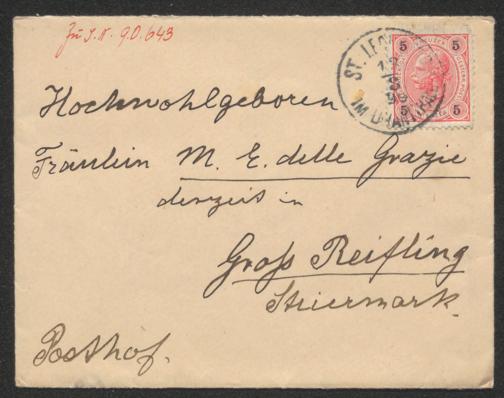 Zu I.N. 90.643
ST. LEO
IM
5 5
5 5
Hochwohlgeboren
Fräulein M. E. delle Grazie
derzeit in
Groß Reifling
Steiermark.
Posthof.